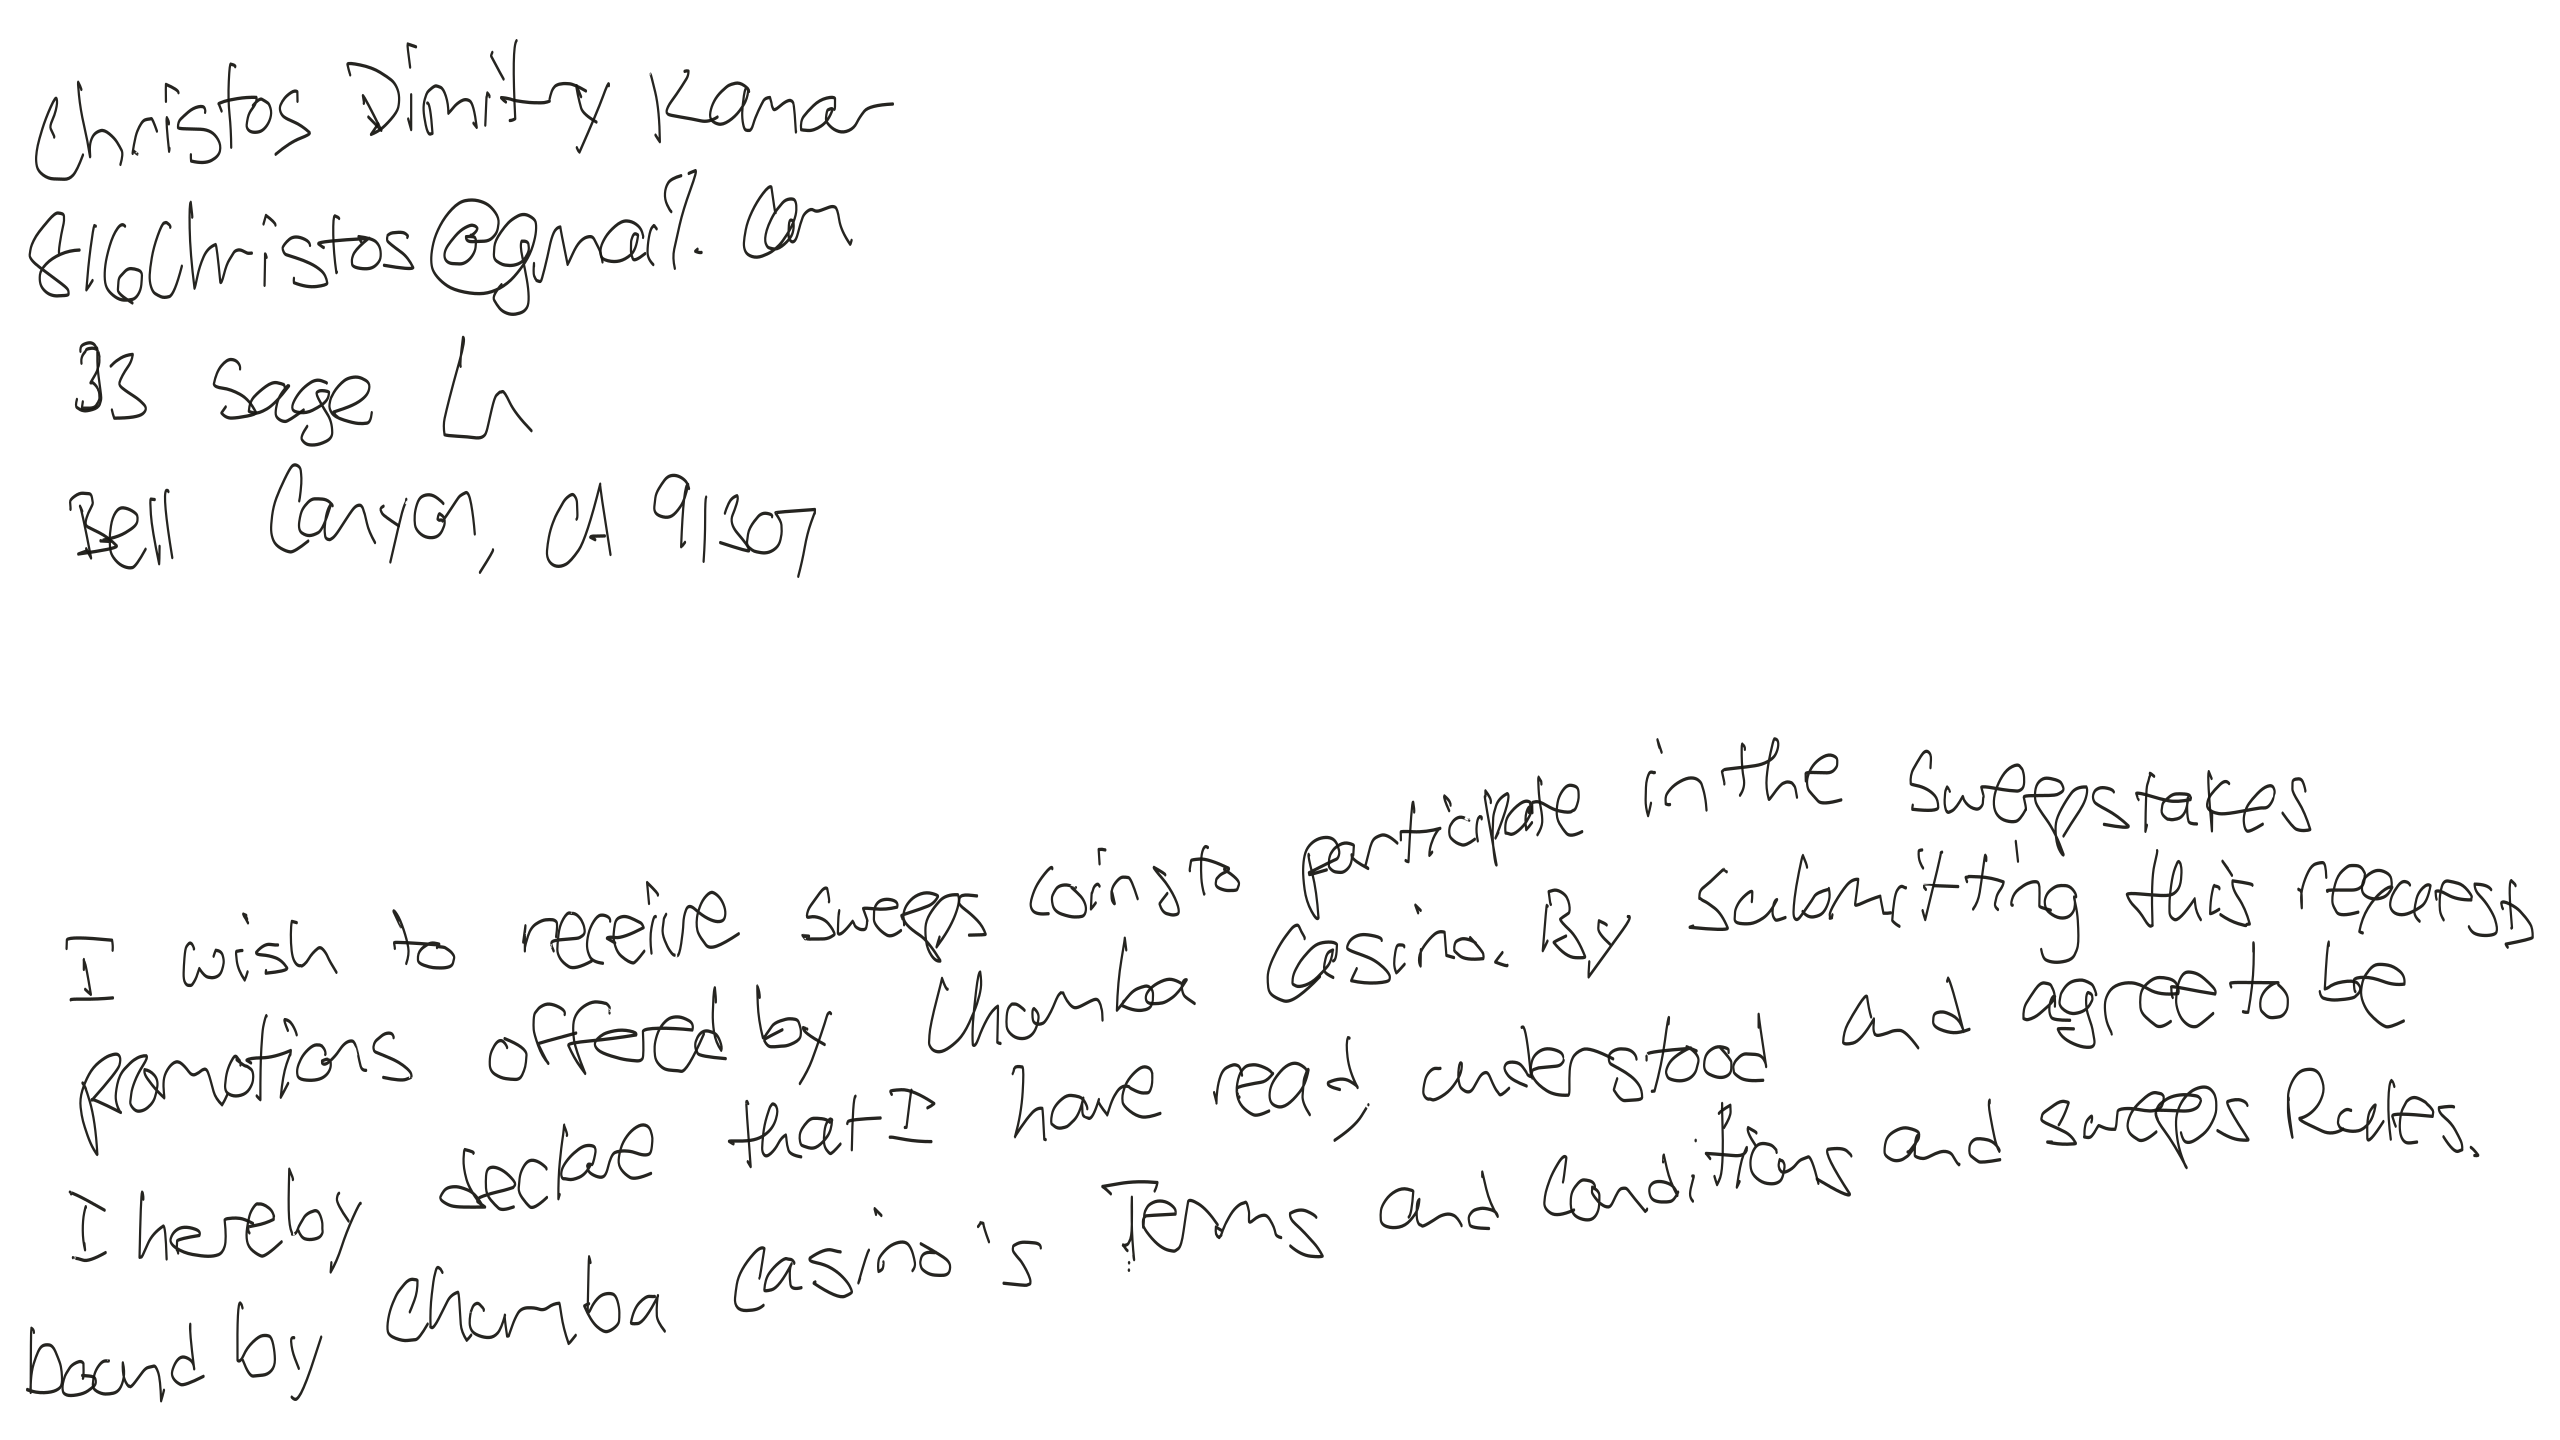 Christos Dimitry Kamar
816Christos@gmail.com
33 Sage Ln
Bell Canyon, CA 91307
I wish to receive sweeps coins to participate in the sweepstakes
promotions offered by Chumba Casino. By submitting this request,
I hereby declare that I have read, understood and agree to be
bound by Chumba Casino's Terms and Conditions and sweeps Rules.